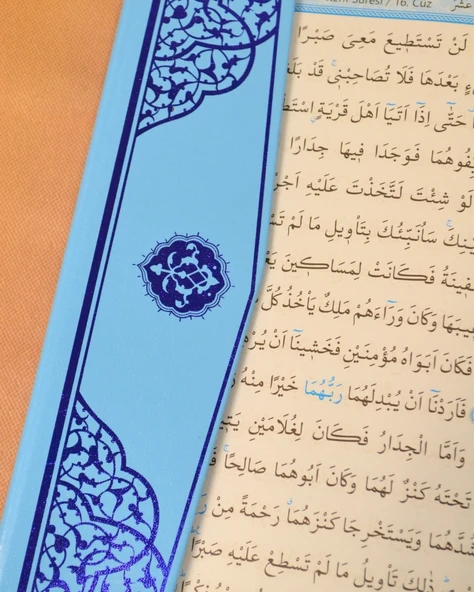 Suresi / 16. Cüz
عشر
لَنْ تَسْتَطِيعَ مَعِىَ صَبْرًا
بَعْدَهَا فَلَا تُصَاحِبْنِى قَدْ بَلَغْ
حَتّٰٓى اِذَٓا اَتَيَٓا اَهْلَ قَرْيَةٍ اسْتَطْ
فَوَجَدَا فِيهَا جِدَارًا
لَوْ شِئْتَ لَتَّخَذْتَ عَلَيْهِ اَجْرً
سَاُنَبِّئُكَ بِتَأْوِيلِ مَا لَمْ تَسْ
فَكَانَتْ لِمَسَاكِينَ يَعْ
وَكَانَ وَرَٓاءَهُمْ مَلِكٌ يَأْخُذُ كُلَّ
فَكَانَ اَبَوَاهُ مُؤْمِنَيْنِ فَخَشِينَٓا اَنْ يُرْهِ
فَاَرَدْنَٓا اَنْ يُبْدِلَهُمَا رَبُّهُمَا خَيْرًا مِنْهُ زَ
وَاَمَّا الْجِدَارُ فَكَانَ لِغُلَامَيْنِ يَتِي
تَحْتَهُ كَنْزٌ لَهُمَا وَكَانَ اَبُوهُمَا صَالِحًا فَ
وَيَسْتَخْرِجَا كَنْزَهُمَا رَحْمَةً مِنْ رَ
ذٰلِكَ تَأْوِيلُ مَا لَمْ تَسْطِعْ عَلَيْهِ صَبْرًا